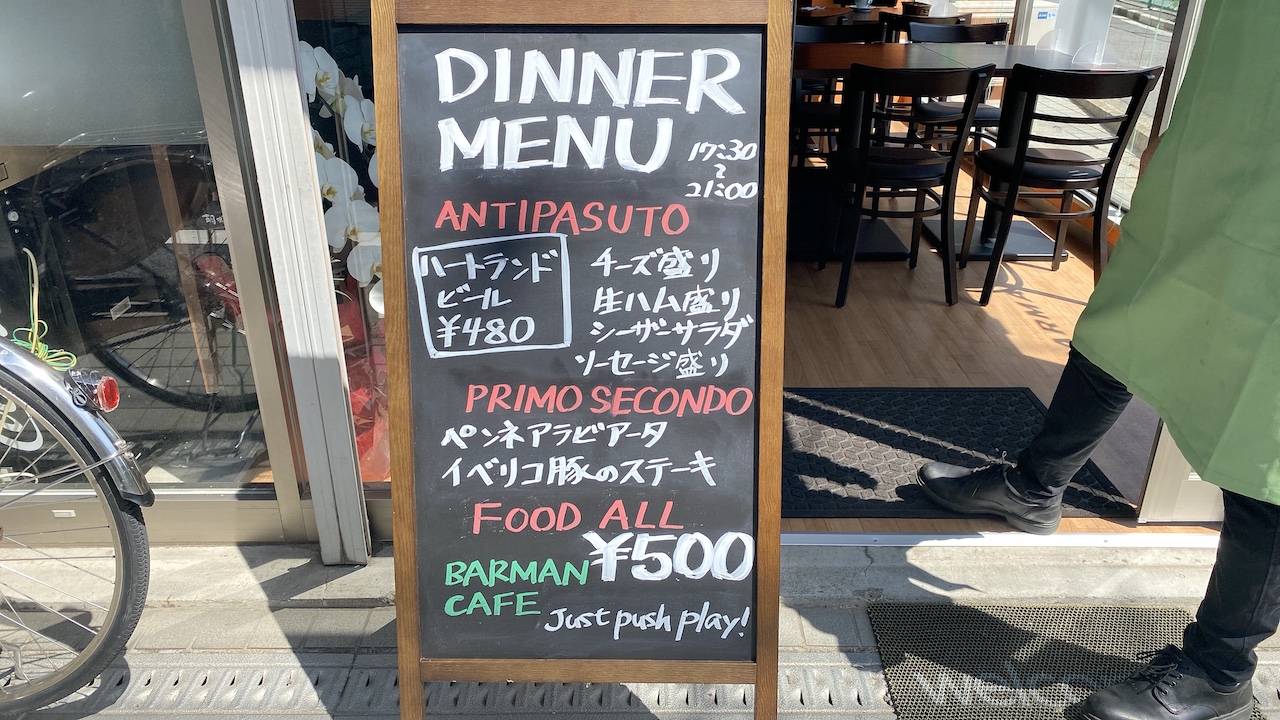 DINNER
MENU
17:30
〜
21:00
ANTIPASUTO
ハートランド
ビール
¥480
チーズ盛り
生ハム盛り
シーザーサラダ
ソーセージ盛り
PRIMO SECONDO
ペンネアラビアータ
イベリコ豚のステーキ
FOOD ALL
¥500
BARMAN
CAFE
Just push play!